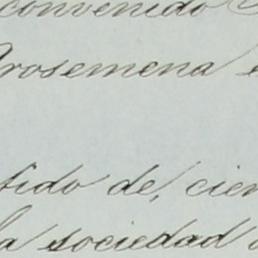 convenido
rosemena e
tido de, cien
la sociedad